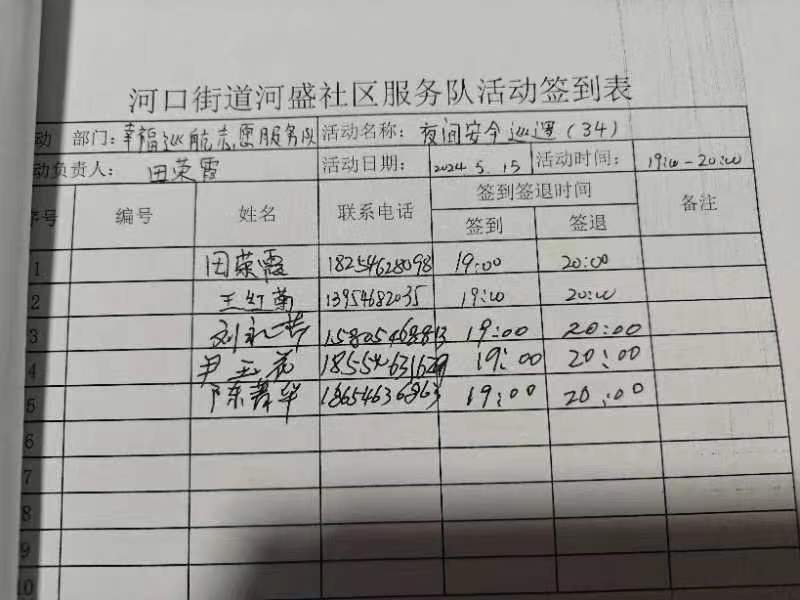 河口街道河盛社区服务队活动签到表
动 部门：幸福巡航志愿服务队 活动名称：夜间安全巡逻（34）
动负责人： 田荣霞 活动日期： 2024.5.15 活动时间： 19:00-20:00
序号 编号 姓名 联系电话 签到签退时间 备注
签到 签退
1 田荣霞 18254628098 19:00 20:00
2 王红菊 13954682035 19:00 20:00
3 19:00 20:00
4 尹玉花 19:00 20:00
5 18654636863 19:00 20:00
6
7
8
9
10